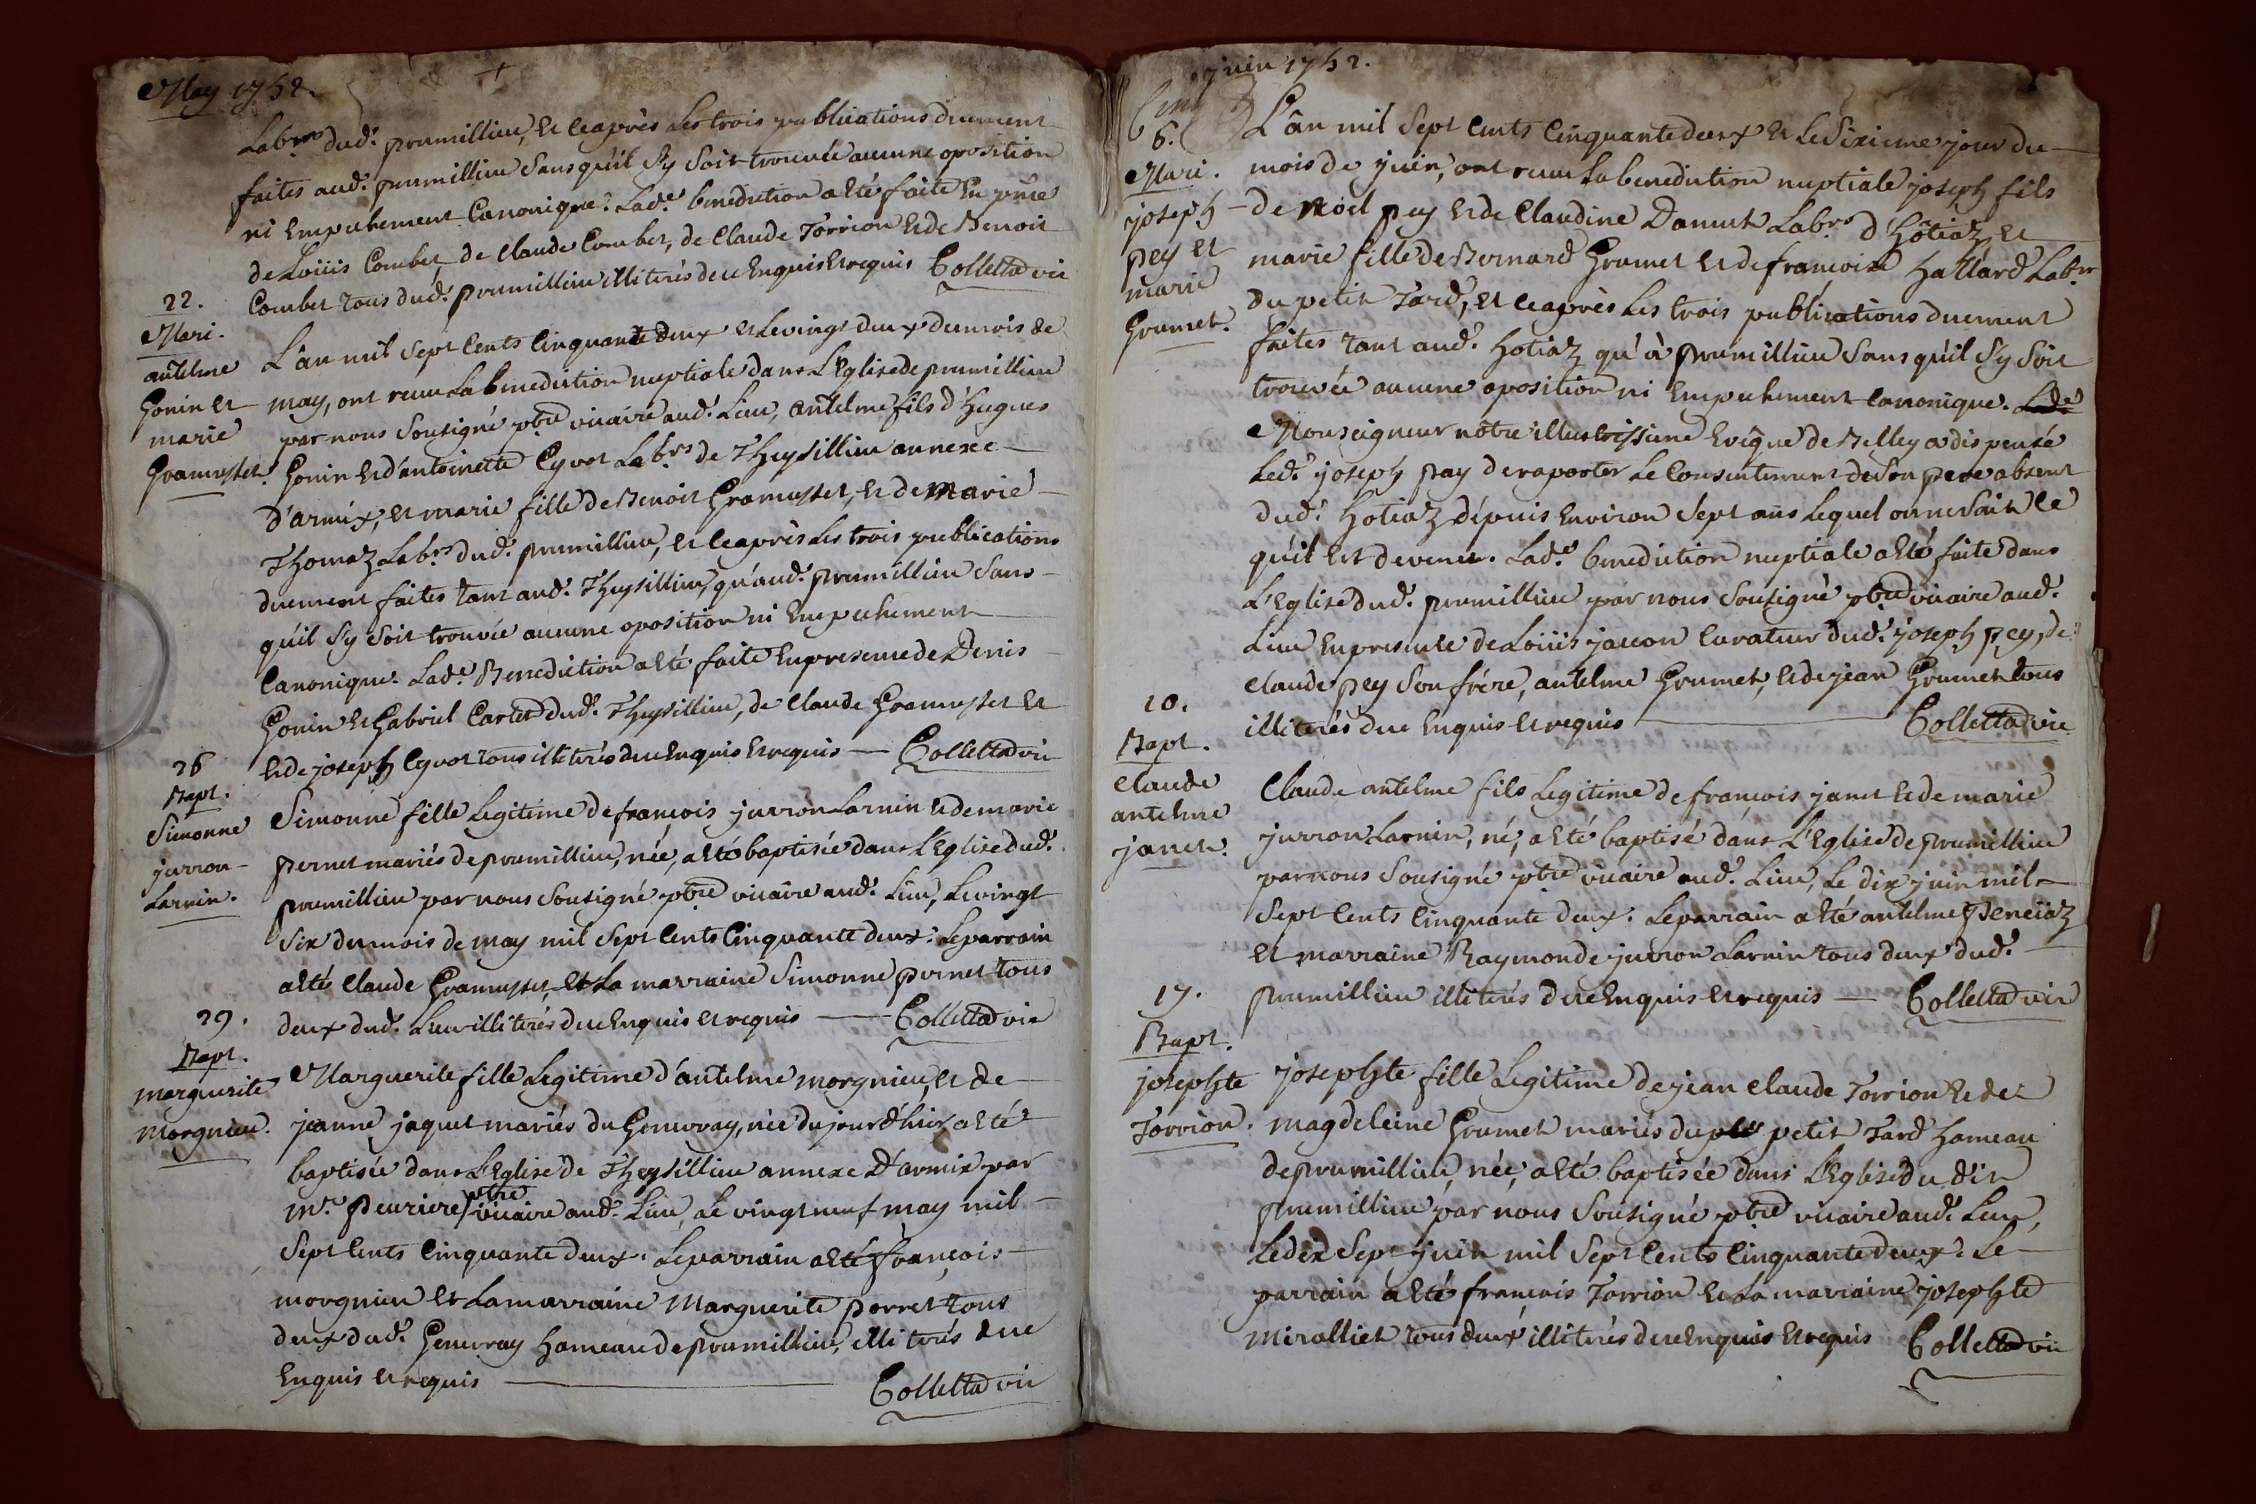 May 1752.
Labrs dud. prumillieu, et ce après les trois publications duement
faites aud. prumillieu sans qu'il s'y soit trouvée aucune oposition
ni Empechement Canonique. Lade. benediction a êté faite En pnce
de Loüis Combet, de Claude Combet, de Claude Torrion et de Benoit
Combet tous dud. prumillieu illiterés de ce Enquis et requis Colletta vic
22.
Mari.
antelme
Gonin et
marie
Gramusset.
L'ân mil sept cents Cinquante deux et le vingt deux du mois de
may, ont recu la benediction nuptiale dans L'Eglise de prumillieu
par nous soussigné ptre vicaire aud. Lieu, antelme fils d'Hugues
Gonin et d'antoinette Cyvot Labrs de Theysillieu annexe
d'armix, et marie fille de Benoit Gramusset, et de marie
Thomaz Labrs dud. prumillieu, et ce après les trois publications
duement faites tant aud. Theysillieu, qu'aud. prumillieu sans
qu'il s'y soit trouvée aucune oposition ni Empechement
Canonique. Lade. Benediction a êté faite En presence de Denis
Gonin et Gabriel Cartet dud. Theysillieu, de Claude Gramusset et
et de joseph Cyvot tous illiterés de ce Enquis et requis Colletta vic
26
Bapt.
Simonne
jurron
Larnin.
Simonne fille Legitime de françois jurron Larnin et de marie
pernet mariés de prumillieu, née, a êté baptisée dans L'Eglise dud.
prumillieu par nous sousigné ptre vicaire aud. Lieu, le vingt
six du mois de may mil sept cents Cinquante deux. Le parrain
a êté Claude Gramusset, et la marraine Simonne pernet tous
deux dud. Lieu illiterés de ce Enquis et requis Colletta vic
29.
Bapt.
marguerite
morgnieu.
Marguerite fille Legitime d'antelme morgnieu, et de
jeanne jaquet mariés du Genevray, née du jour d'hier a êté
baptisée dans L'Eglise de Theysillieu annexe d'armix par
mr. peuriere ptre vicaire aud. Lieu, Le vingt neuf may mil
sept cents Cinquante deux. Le parrain a êté françois
morgnieu et la marraine Marguerite perret tous
deux dud. Genevray hameau de prumillieu, illiterés de ce
Enquis et requis Colletta vic
juin 1752.
6.
Mari.
joseph
pey et
marie
Grumet.
L'ân mil sept cents Cinquante deux et le sixieme jour du
mois de juin, ont recu la benediction nuptiale joseph fils
de Noël pey et de Claudine Danut Labrs d'Hôtiaz, et
marie fille de Bernard Grumet et de françoise hallard Labrs
du petit Tard, et ce après les trois publications duement
faites tant aud. hotiaz qu'à prumillieu sans qu'il s'y soit
trouvée aucune oposition ni Empechement Canonique. Lade
Monseigneur nôtre illustrissime Evêque de Belley a dispensé
Led. joseph pay de raporter Le Consentement de son pere absent
dud. hotiaz dépuis Environ sept ans lequel on ne sait ce
qu'il est devenu. Lade. benediction nuptiale a êté faite dans
L'Eglise dud. prumillieu par nous sousigné ptre vicaire aud.
Lieu En presence de Loüis jaccon Curateur dud. joseph pey, de
Claude pey son frére, antelme Grumet, et de jean Grumet tous
illiterés de ce Enquis et requis Colletta vic
10.
Bapt.
Claude
antelme
janet.
Claude antelme fils Legitime de francois janet et de marie
jurron Larnin, né, a êté baptisé dans L'Eglise de prumillieu
par nous sousigné ptre vicaire aud. Lieu, Le dix juin mil
sept cents Cinquante deux. Le parrain a êté antelme peneïaz
et marraine Raymonde jurron Larnin tous deux dud.
prumillieu illiterés de ce Enquis et requis Colletta vic
17.
Bapt.
josephte
Torrion.
josephte fille Legitime de jean Claude Torrion et de
magdeleine Grumet mariés du petit Tard hameau
de prumillieu, née, a êté baptisée dans L'Eglise du dit
prumillieu par nous sousigné ptre vicaire aud. Lieu,
Le dix sept juin mil sept cents Cinquante deux. Le
parrain a êté francois Torrion et la marraine josephte
miralliet tous deux illiterés de ce Enquis et requis Colletta vic